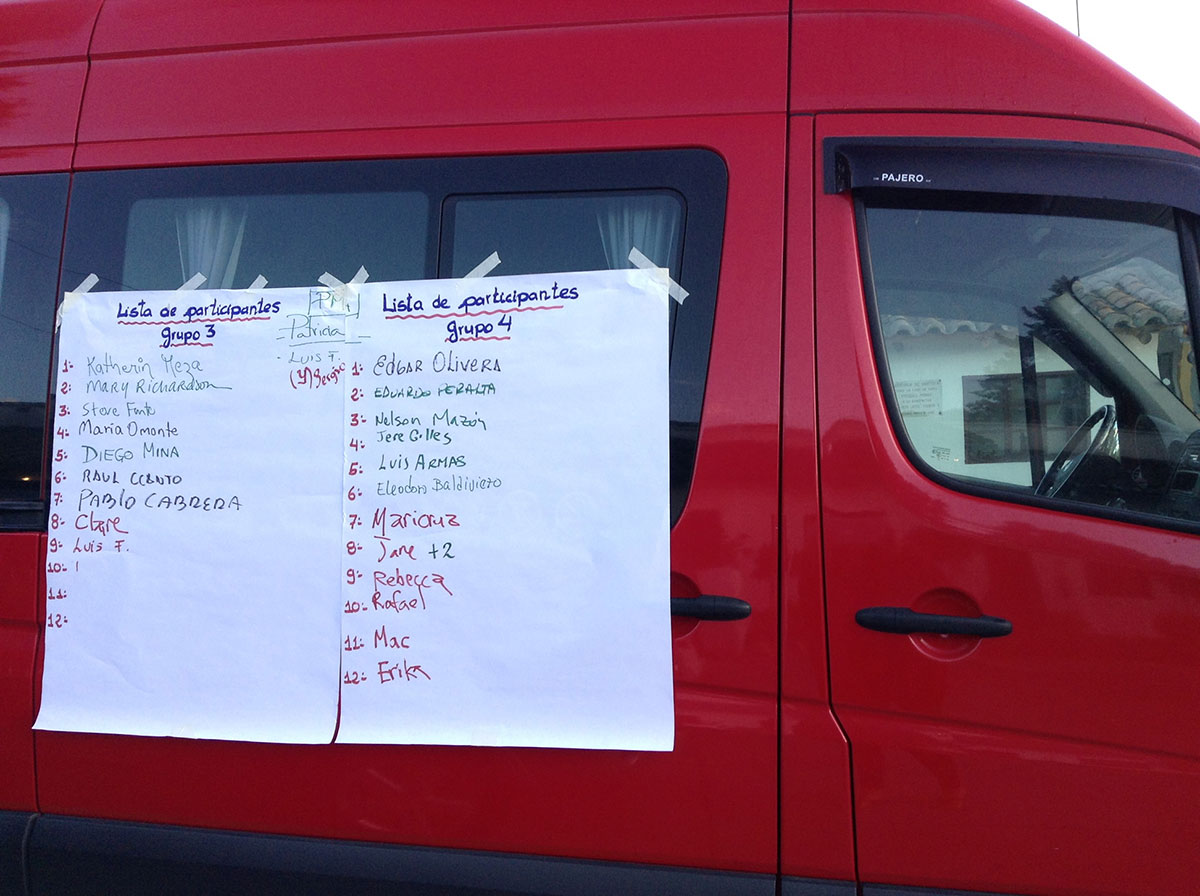 PAJERO
Lista de participantes
grupo 3
1:- Katherin Meza
2:- Mary Richardson
3:- Steve
4:- Maria Omonte
5:- DIEGO MINA
6:- RAUL CCENTO
7:- PABLO CABRERA
8:- Clare
9:- Luis F.
10:- I
11:-
12:-
PM,
Patricia
- Luis F.
(Y) Sergio
Lista de participantes
grupo 4
1:- EDGAR OLIVERA
2:- EDUARDO PERALTA
3:- Nelson Mazón
4:- Jere Gilles
5:- LUIS ARMAS
6:- Eleodoro Baldiviezo
7:- Maricruz
8:- Jane +2
9:- Rebecca
10:- Rafael
11:- Mac
12:- Erika